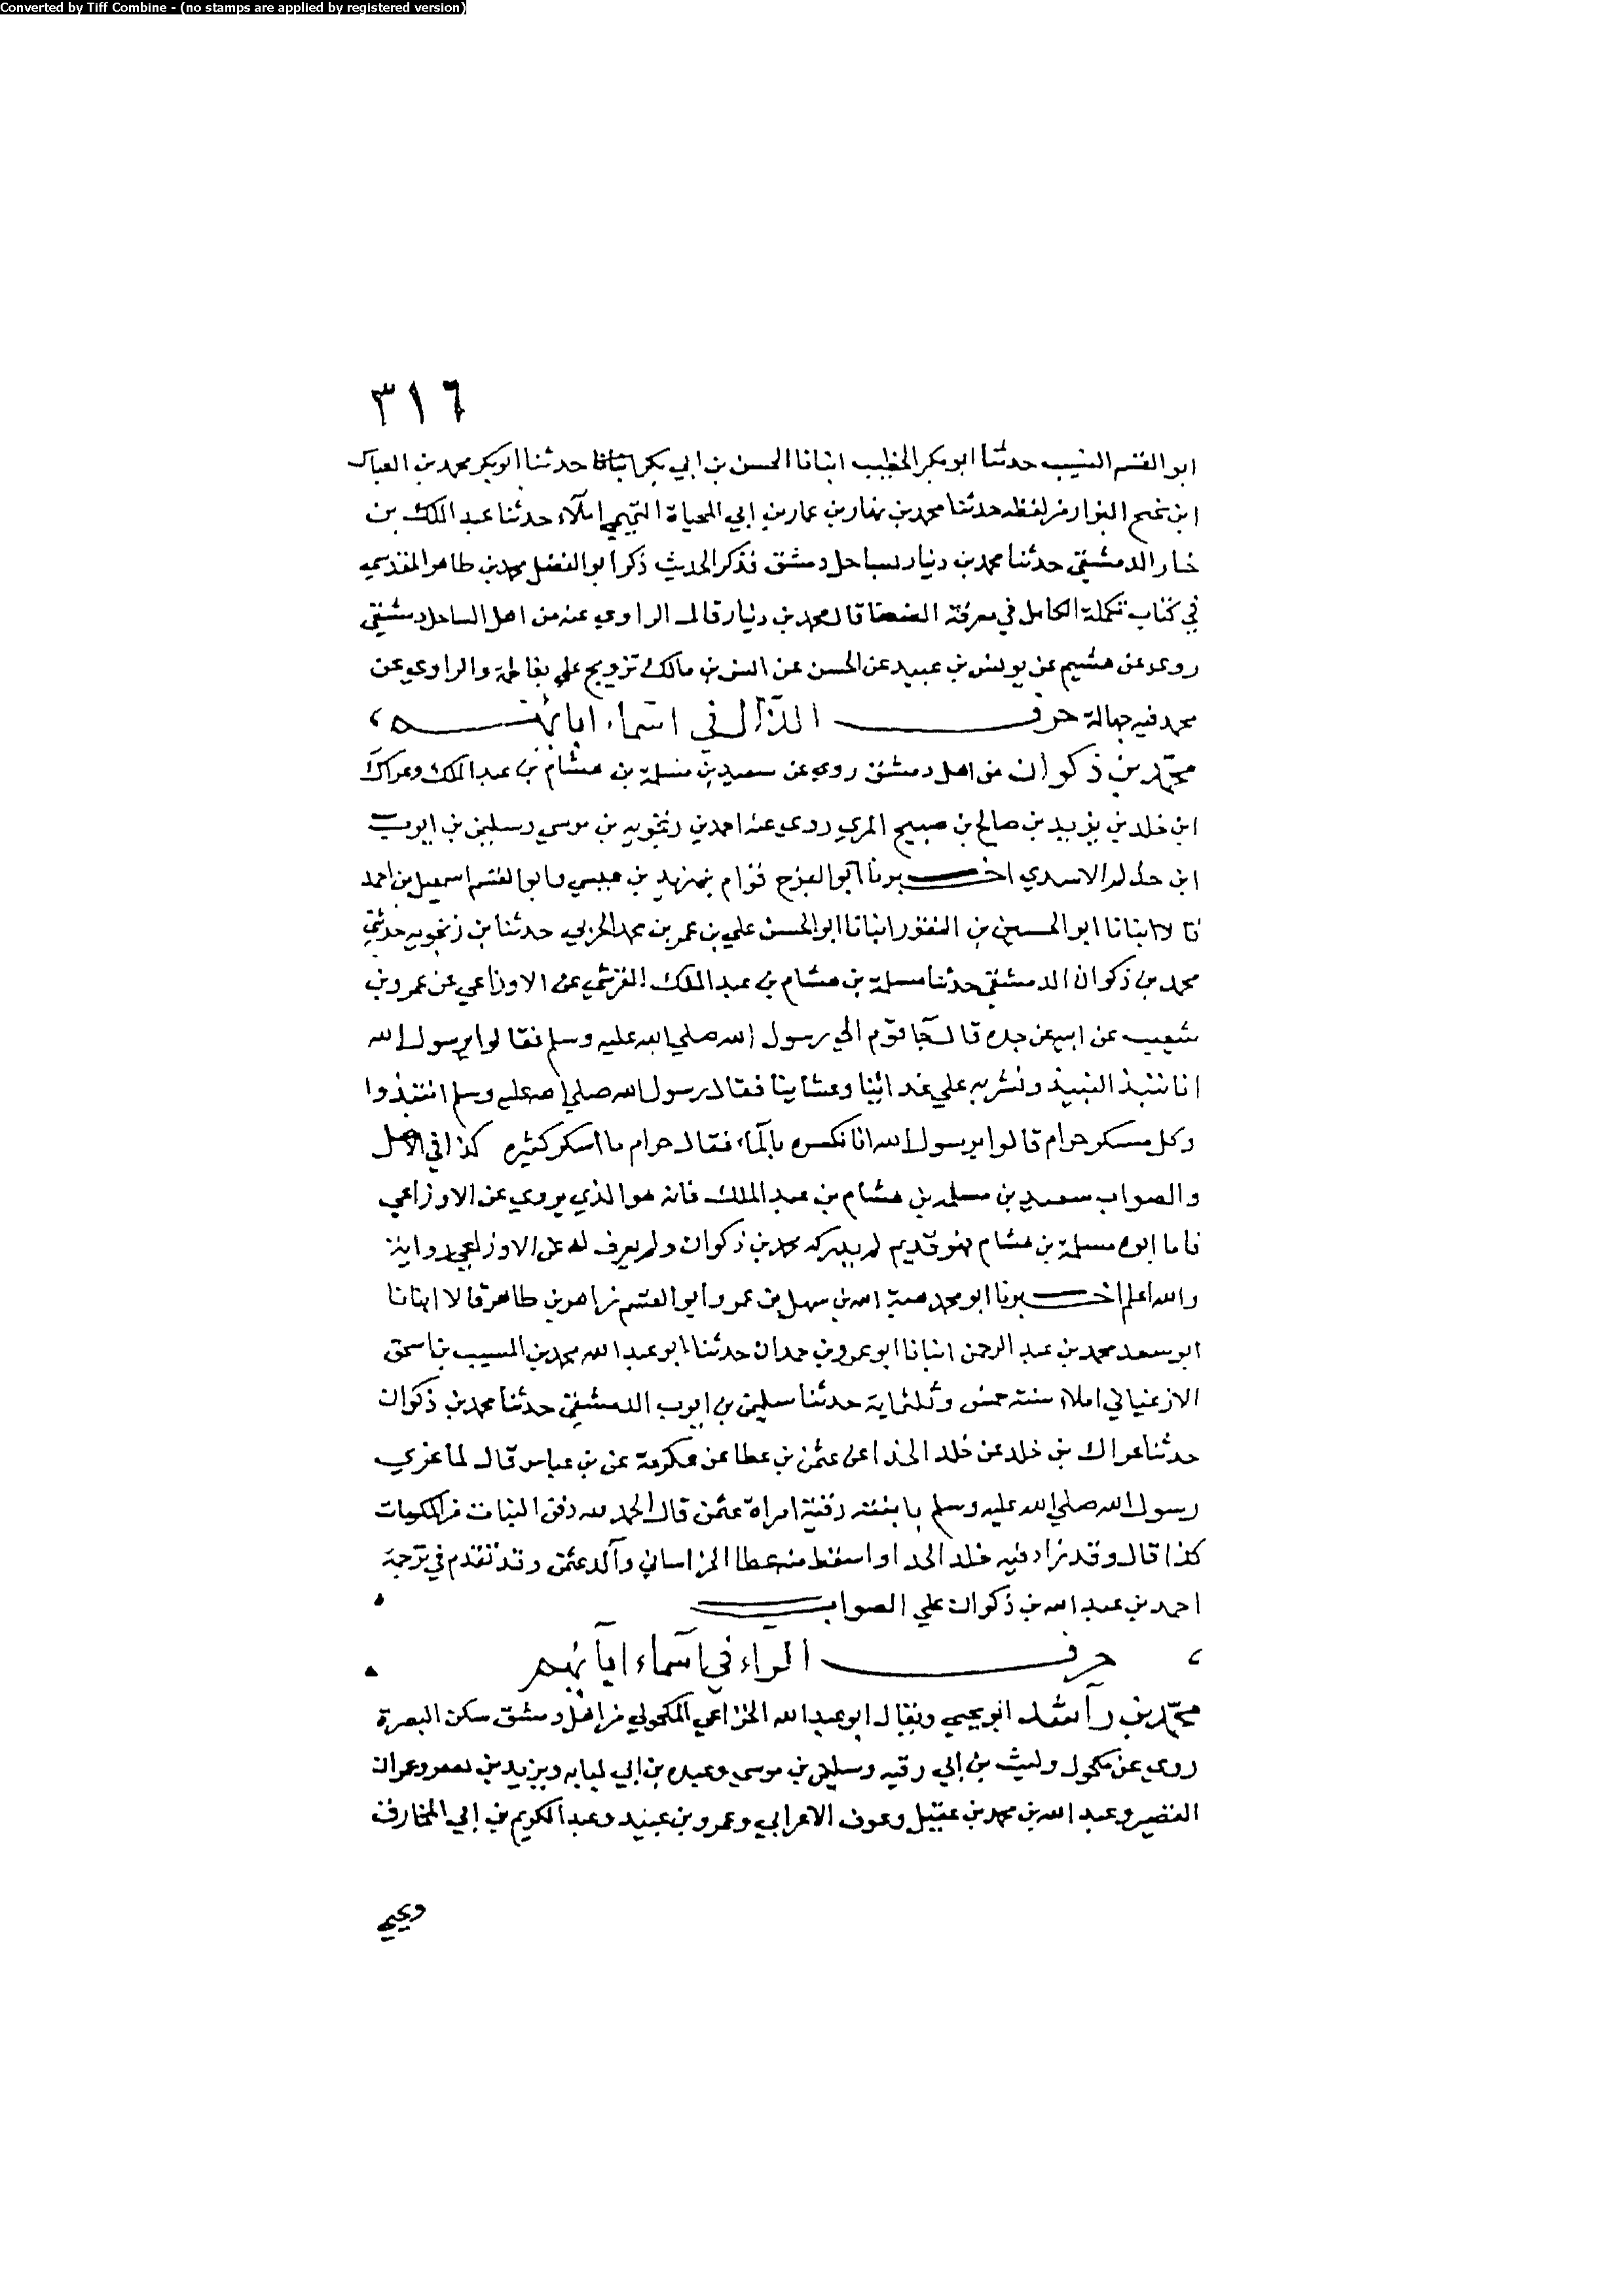 Converted by Tiff Combine - (no stamps are applied by registered version)
٣١٦
ابو القسم النسيب حدثنا ابو بكر الخطيب انبانا الحسن بن ابي بكر انبانا حدثنا ابو بكر محمد بن العباس
ابن نجيح البزار من لفظه حدثنا محمد بن نهار بن عمار بن ابي المحياة التيمي املاء حدثنا عبد الملك بن
خيار الدمشقي حدثنا محمد بن دينار بساحل دمشق فذكر الحديث ذكر ابو الفضل محمد بن طاهر المقدسي
في كتاب تكملة الكامل في معرفة الضعفا قال محمد بن دينار قال الراوي عنه من اهل الساحل دمشقي
روى عن هشيم عن يونس بن عبيد عن الحسن عن انس بن مالك تزويج علي بفاطمة والراوي عن
محمد فيه جهالة حرف الذال في اسماء آبائهم
محمد بن ذكوان من اهل دمشق روى عن سعيد بن مسلمة بن هشام بن عبد الملك وعراك
ابن خلد بن يزيد بن صالح بن صبيح المري روى عنه احمد بن زنجويه بن موسي وسليمن بن ايوب
ابن حذلم الاسدي اخبرنا ابو الفرج قوام بن زيد بن عيسي وابو القسم اسمعيل بن احمد
قالا انبانا ابو الحسين بن النقور انبانا ابو الحسن علي بن عمر بن محمد الحربي حدثنا بن زنجويه حدثني
محمد بن ذكوان الدمشقي حدثنا مسلمة بن هشام بن عبد الملك القرشي عن الاوزاعي عن عمرو بن
شعيب عن ابيه عن جده قال جا قوم الي رسول الله صلي الله عليه وسلم فقالوا يرسول الله
انا ننبذ النبيذ ونشربه علي غدائنا وعشاينا فقال رسول الله صلي الله عليه وسلم انتبذوا
وكل مسكر حرام قالوا يرسول الله انا نكسره بالماء فقال حرام ما اسكر كثيره كذا في الاصل
والصواب سعيد بن مسلمه بن هشام بن عبد الملك فانه هو الذي يروي عن الاوزاعي
فاما ابوه مسلمة بن هشام فهو قديم لم يدركه محمد بن ذكوان ولم يعرف له عن الاوزاعي رواية
والله اعلم اخبرنا ابو محمد هبة الله بن سهل بن عمر وابو القسم زاهر بن طاهر قالا انبانا
ابو سعد محمد بن عبد الرحمن انبانا ابو عمرو بن حمدان حدثنا ابو عبد الله محمد بن المسيب بن اسحق
الارغياني املاء سنة خمس وثلثماية حدثنا سليمن بن ايوب الدمشقي حدثنا محمد بن ذكوان
حدثنا عراك بن خلد عن خلد الحذا عن عثمن بن عطا عن عكرمة عن بن عباس قال لما عزي
رسول الله صلي الله عليه وسلم بابنته رقية امراة عثمن قال الحمد لله دفن البنات من المكرمات
كذا قال وقد زاد فيه خلد الحذا واسقط منه عطا الخراساني والد عثمن وقد تقدم في ترجمة
احمد بن عبد الله بن ذكوان علي الصواب
حرف الراء في اسماء آبائهم
محمد بن راشد ابو يحيي ويقال ابو عبد الله الخزاعي المكحولي من اهل دمشق سكن البصرة
روى عن مكحول وليث بن ابي رقيه وسليمن بن موسي وعبده بن ابي لبابه ويزيد بن يعمر وعمران
القصير وعبد الله بن محمد بن عقيل وعوف الاعرابي وعمرو بن عبيد وعبد الكريم بن ابي المخارق
ويحيي